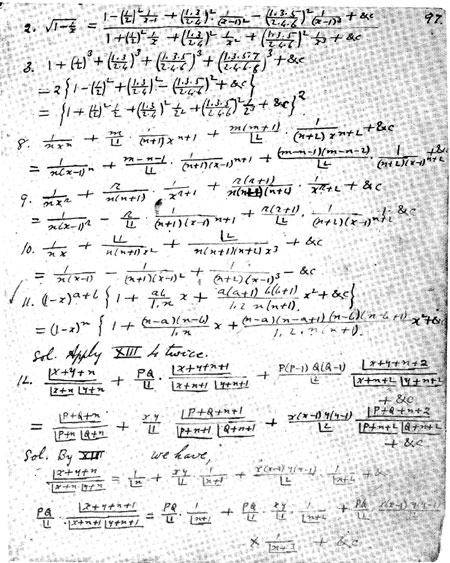 97
2. √(1-1/x) = (1-(1/2)² 1/(x-1) + (1.3/2.4)² 1/(x-1)² - (1.3.5/2.4.6)² 1/(x-1)³ + &c) / (1+(1/2)² 1/x + (1.3/2.4)² 1/x² + (1.3.5/2.4.6)² 1/x³ + &c)
3. 1+(1/2)³ + (1.3/2.4)³ + (1.3.5/2.4.6)³ + (1.3.5.7/2.4.6.8)³ + &c
= 2{1-(1/2)² + (1.3/2.4)² - (1.3.5/2.4.6)² + &c}
= {1+(1/2)² 1/2 + (1.3/2.4)² 1/2² + (1.3.5/2.4.6)² 1/2³ + &c}².
8. 1/(n xⁿ) + m/|1 . 1/((n+1) xⁿ⁺¹) + m(m+1)/|2 . 1/((n+2) xⁿ⁺²) + &c
= 1/(n(x-1)ⁿ) + (m-n-1)/|1 . 1/((n+1)(x-1)ⁿ⁺¹) + (m-n-1)(m-n-2)/|2 . 1/((n+2)(x-1)ⁿ⁺²) + &c
9.
10. 1/(nx) + |1/(n(n+1)x²) + |2/(n(n+1)(n+2)x³) + &c
= 1/(n(x-1)) - 1/((n+1)(x-1)²) + 1/((n+2)(x-1)³) - &c
11. (1-x)ᵃ⁺ᵇ {1 + ab/(1.n) x + a(a+1) b(b+1)/(1.2 n(n+1)) x² + &c}
= (1-x)ⁿ {1 + (n-a)(n-b)/(1.n) x + (n-a)(n-a+1)(n-b)(n-b+1)/(1.2.n(n+1)) x² + &c}
Sol. Apply XIII 4 twice.
12. |x+y+n/(|x+n |y+n) + PQ/|1 . |x+y+n+1/(|x+n+1 |y+n+1) + P(P-1) Q(Q-1)/|2 . |x+y+n+2/(|x+n+2 |y+n+2)
+ &c
= |P+Q+n/(|P+n |Q+n) + xy/|1 . |P+Q+n+1/(|P+n+1 |Q+n+1) + x(x-1) y(y-1)/|2 . |P+Q+n+2/(|P+n+2 |Q+n+2)
+ &c
Sol. By XIII we have,
|x+y+n/(|x+n |y+n) = 1/|n + xy/|1 . 1/|n+1 + x(x-1) y(y-1)/|2 . 1/|n+2 + &c
PQ/|1 . |x+y+n+1/(|x+n+1 |y+n+1) = PQ/|1 . 1/|n+1 + PQ/|1 . xy/|1 . 1/|n+2 + PQ/|1 . x(x-1) y(y-1)/|2
× 1/|n+3 + &c